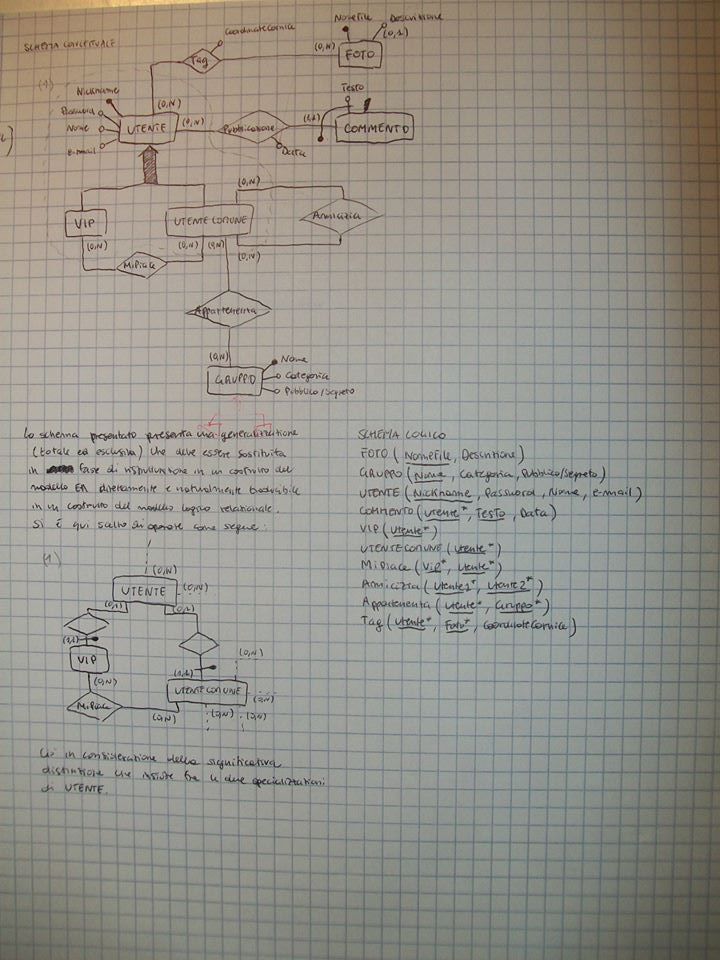 SCHEMA CONCETTUALE
CoordinateCornice
NomeFile
Descrizione
(0,1)
Tag
(0,N)
FOTO
(1)
Nickname
Password
Nome
e-mail
(0,N)
UTENTE
(0,N)
Pubblicazione
Data
(1,1)
Testo
COMMENTO
VIP
UTENTE COMUNE
(0,N)
Amicizia
(0,N)
(0,N)
(0,N)
(0,N)
MiPiace
Appartenenza
(0,N)
GRUPPO
Nome
Categoria
Pubblico/Segreto
Lo schema presentato presenta una generalizzazione
(totale ed esclusiva) che deve essere sostituita
in fase di ristrutturazione in un costrutto del
modello ER direttamente e naturalmente traducibile
in un costrutto del modello logico relazionale.
Si è qui scelto di operare come segue:
(1)
(0,N)
UTENTE
(0,N)
(0,1)
(0,1)
(1,1)
VIP
(0,N)
MiPiace
(0,N)
(1,1)
UTENTE COMUNE
(0,N)
(0,N)
(0,N)
(0,N)
Ciò in considerazione della significativa
distinzione che esiste fra le due specializzazioni
di UTENTE.
SCHEMA LOGICO
FOTO (NomeFile, Descrizione)
GRUPPO (Nome, Categoria, Pubblico/Segreto)
UTENTE (Nickname, Password, Nome, e-mail)
COMMENTO (Utente*, Testo, Data)
VIP (Utente*)
UTENTECOMUNE (Utente*)
MiPiace (Vip*, Utente*)
Amicizia (Utente1*, Utente2*)
Appartenenza (Utente*, Gruppo*)
Tag (Utente*, Foto*, CoordinateCornice)